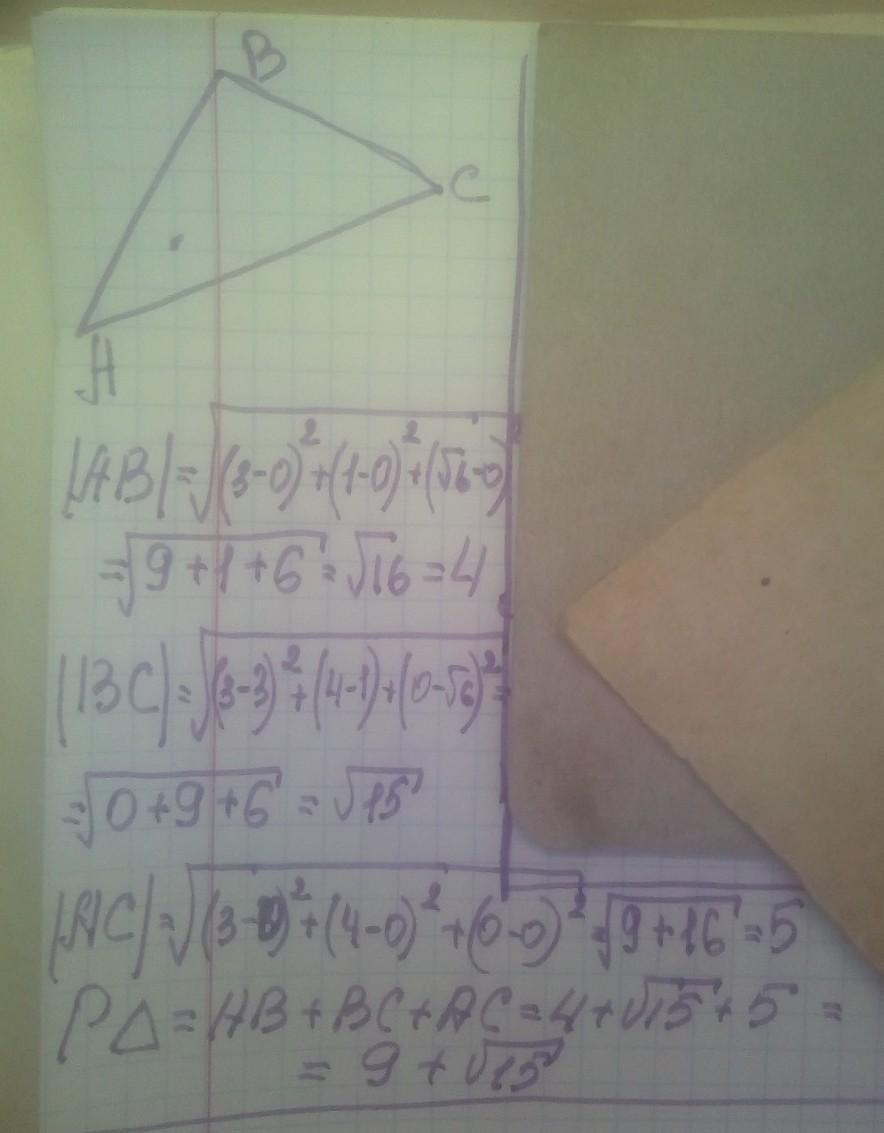 B
C
A
|AB| = √(3-0)² + (1-0)² + (√6-0)²
= √9+1+6 = √16 = 4
|BC| = √(3-3)² + (4-1) + (0-√6)² =
= √0+9+6 = √15
|AC| = √(3-0)² + (4-0)² + (0-0)² = √9+16 = 5
P△ = AB + BC + AC = 4 + √15 + 5 =
= 9 + √15